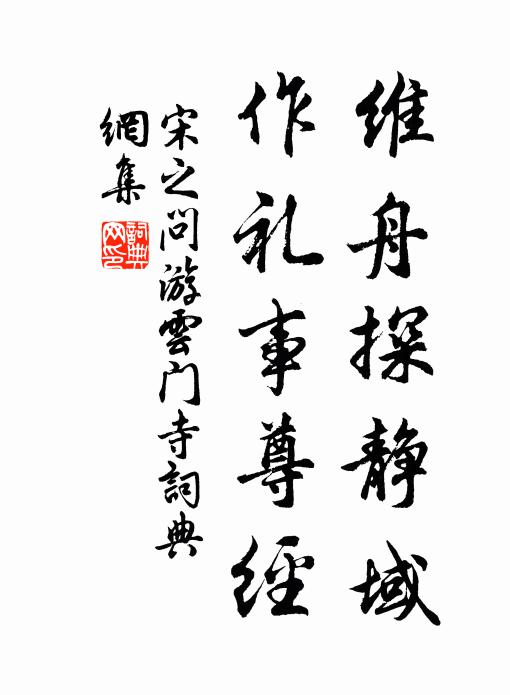 维舟探静域
作礼事尊经
宋之问游雲门寺詞典
網集
詞典
网印